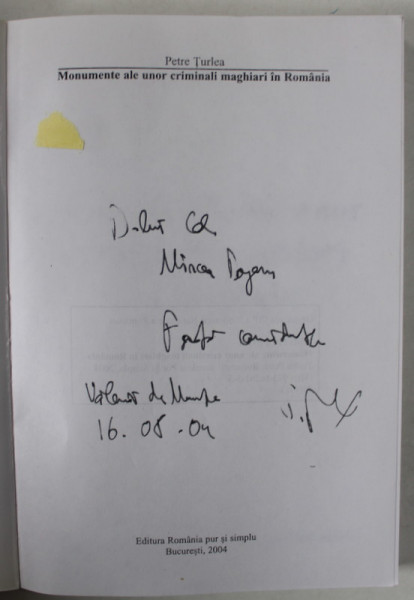 Petre Țurlea
Monumente ale unor criminali maghiari în România
D-lui Col.
Mircea
Vălenii de Munte
16.08.04
Editura România pur și simplu
București, 2004